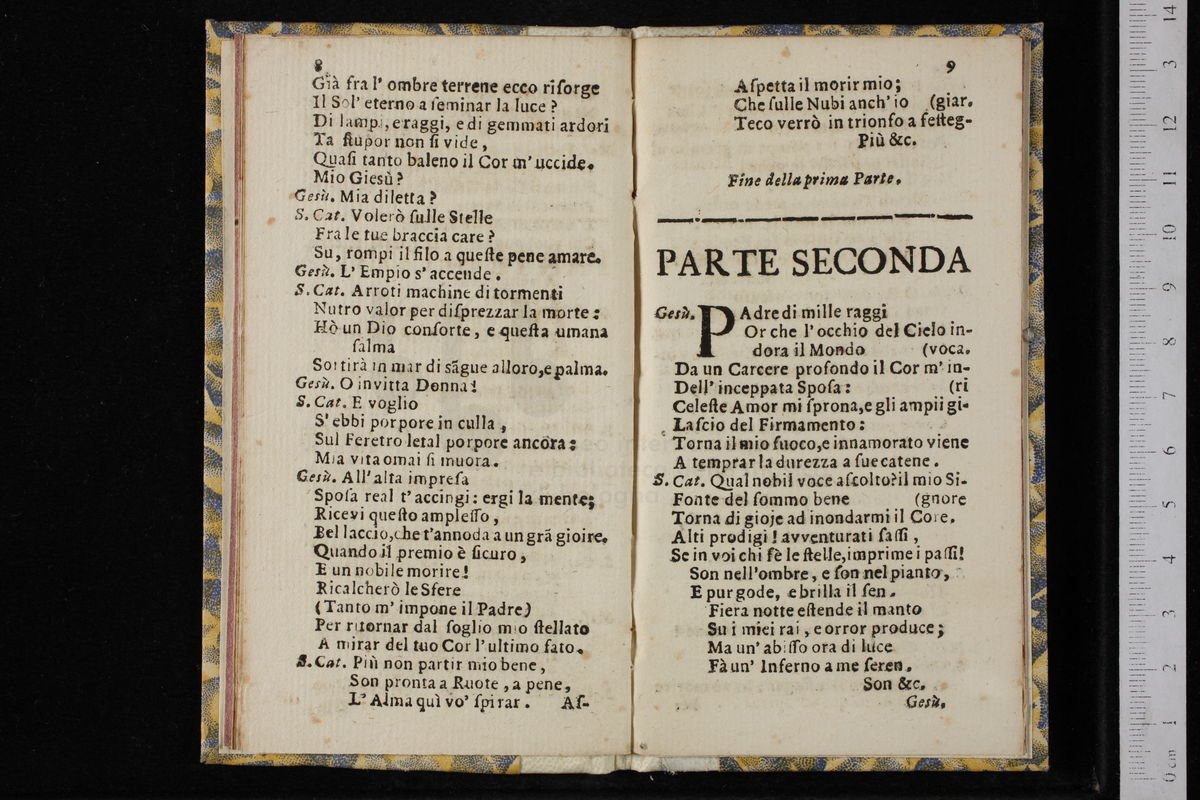 8
Già fra l' ombre terrene ecco riſorge
Il Sol' eterno a ſeminar la luce ?
Di lampi, e raggi, e di gemmati ardori
Ta ſtupor non ſi vide,
Quaſi tanto baleno il Cor m' uccide.
Mio Giesù ?
Gesù. Mia diletta ?
S. Cat. Volerò ſulle Stelle
Fra le tue braccia care ?
Su, rompi il filo a queſte pene amare.
Gesù. L' Empio s' accende.
S. Cat. Arroti machine di tormenti
Nutro valor per diſprezzar la morte :
Hò un Dio conſorte, e queſta umana
ſalma
Sortirà in mar di sãgue alloro, e palma.
Gesù. O invitta Donna !
S. Cat. E voglio
S' ebbi porpore in culla,
Sul Feretro letal porpore ancora :
Mia vita omai ſi muora.
Gesù. All' alta impreſa
Spoſa real t' accingi : ergi la mente;
Ricevi queſto ampleſſo,
Bel laccio, che t' annoda a un grã gioire.
Quando il premio è ſicuro,
E un nobile morire !
Ricalcherò le Sfere
(Tanto m' impone il Padre)
Per ritornar dal ſoglio mio ſtellato
A mirar del tuo Cor l' ultimo fato.
S. Cat. Più non partir mio bene,
Son pronta a Ruote, a pene,
L' Alma quì vo' ſpirar. Aſ-
9
Aſpetta il morir mio;
Che ſulle Nubi anch' io (giar.
Teco verrò in trionfo a feſteg-
Più &c.
Fine della prima Parte.
PARTE SECONDA
Gesù. PAdre di mille raggi
Or che l' occhio del Cielo in-
dora il Mondo (voca.
Da un Carcere profondo il Cor m' in-
Dell' inceppata Spoſa : (ri
Celeſte Amor mi ſprona, e gli ampii gi-
Laſcio del Firmamento :
Torna il mio fuoco, e innamorato viene
A temprar la durezza a ſue catene.
S. Cat. Qual nobil voce aſcolto? il mio Si-
Fonte del ſommo bene (gnore
Torna di gioje ad inondarmi il Core.
Alti prodigi ! avventurati ſaſſi,
Se in voi chi fè le ſtelle, imprime i paſſi!
Son nell' ombre, e ſon nel pianto,
E pur gode, e brilla il ſen.
Fiera notte eſtende il manto
Su i miei rai, e orror produce;
Ma un' abiſſo ora di luce
Fà un' Inferno a me ſeren.
Son &c.
Gesù.
0 cm 1 2 3 4 5 6 7 8 9 10 11 12 3 14